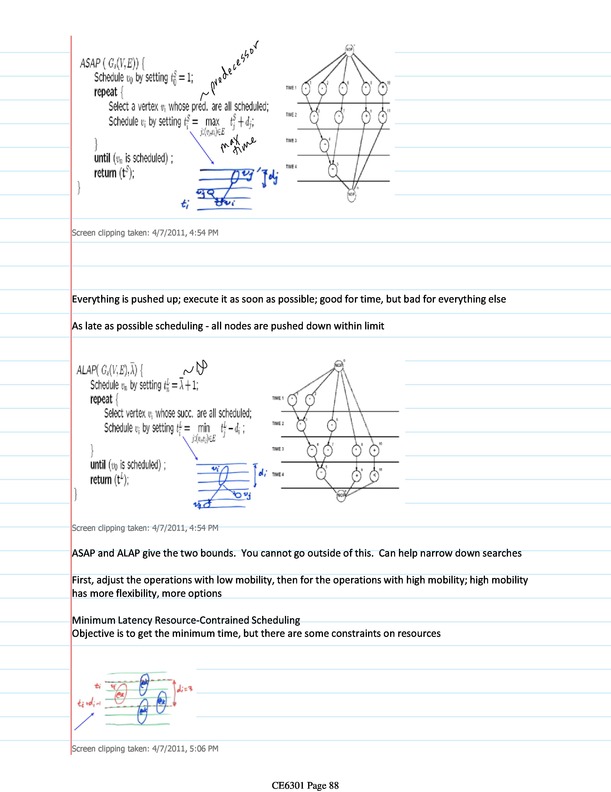 ASAP ( Gs(V,E)) {
Schedule v0 by setting t0^S = 1;
repeat {
~ predecessor
Select a vertex vi whose pred. are all scheduled;
Schedule vi by setting ti^S = max tj^S + dj;
j:(vj,vi)∈E
max
time
}
until (vn is scheduled) ;
return (t^S);
}
vj
dj
ti
vi
NOP
TIME 1
TIME 2
TIME 3
TIME 4
NOP
Screen clipping taken: 4/7/2011, 4:54 PM
Everything is pushed up; execute it as soon as possible; good for time, but bad for everything else
As late as possible scheduling - all nodes are pushed down within limit
ALAP( Gs(V,E),λ̄) {
Schedule vn by setting tn^L = λ̄ + 1;
repeat {
Select vertex vi whose succ. are all scheduled;
Schedule vi by setting ti^L = min tj^L − di ;
j:(vi,vj)∈E
}
until (v0 is scheduled) ;
return (t^L);
}
vi
di
vj
vj
NOP
TIME 1
TIME 2
TIME 3
TIME 4
NOP
Screen clipping taken: 4/7/2011, 4:54 PM
ASAP and ALAP give the two bounds. You cannot go outside of this. Can help narrow down searches
First, adjust the operations with low mobility, then for the operations with high mobility; high mobility
has more flexibility, more options
Minimum Latency Resource-Contrained Scheduling
Objective is to get the minimum time, but there are some constraints on resources
ti
di=3
ti+di-1
Screen clipping taken: 4/7/2011, 5:06 PM
CE6301 Page 88